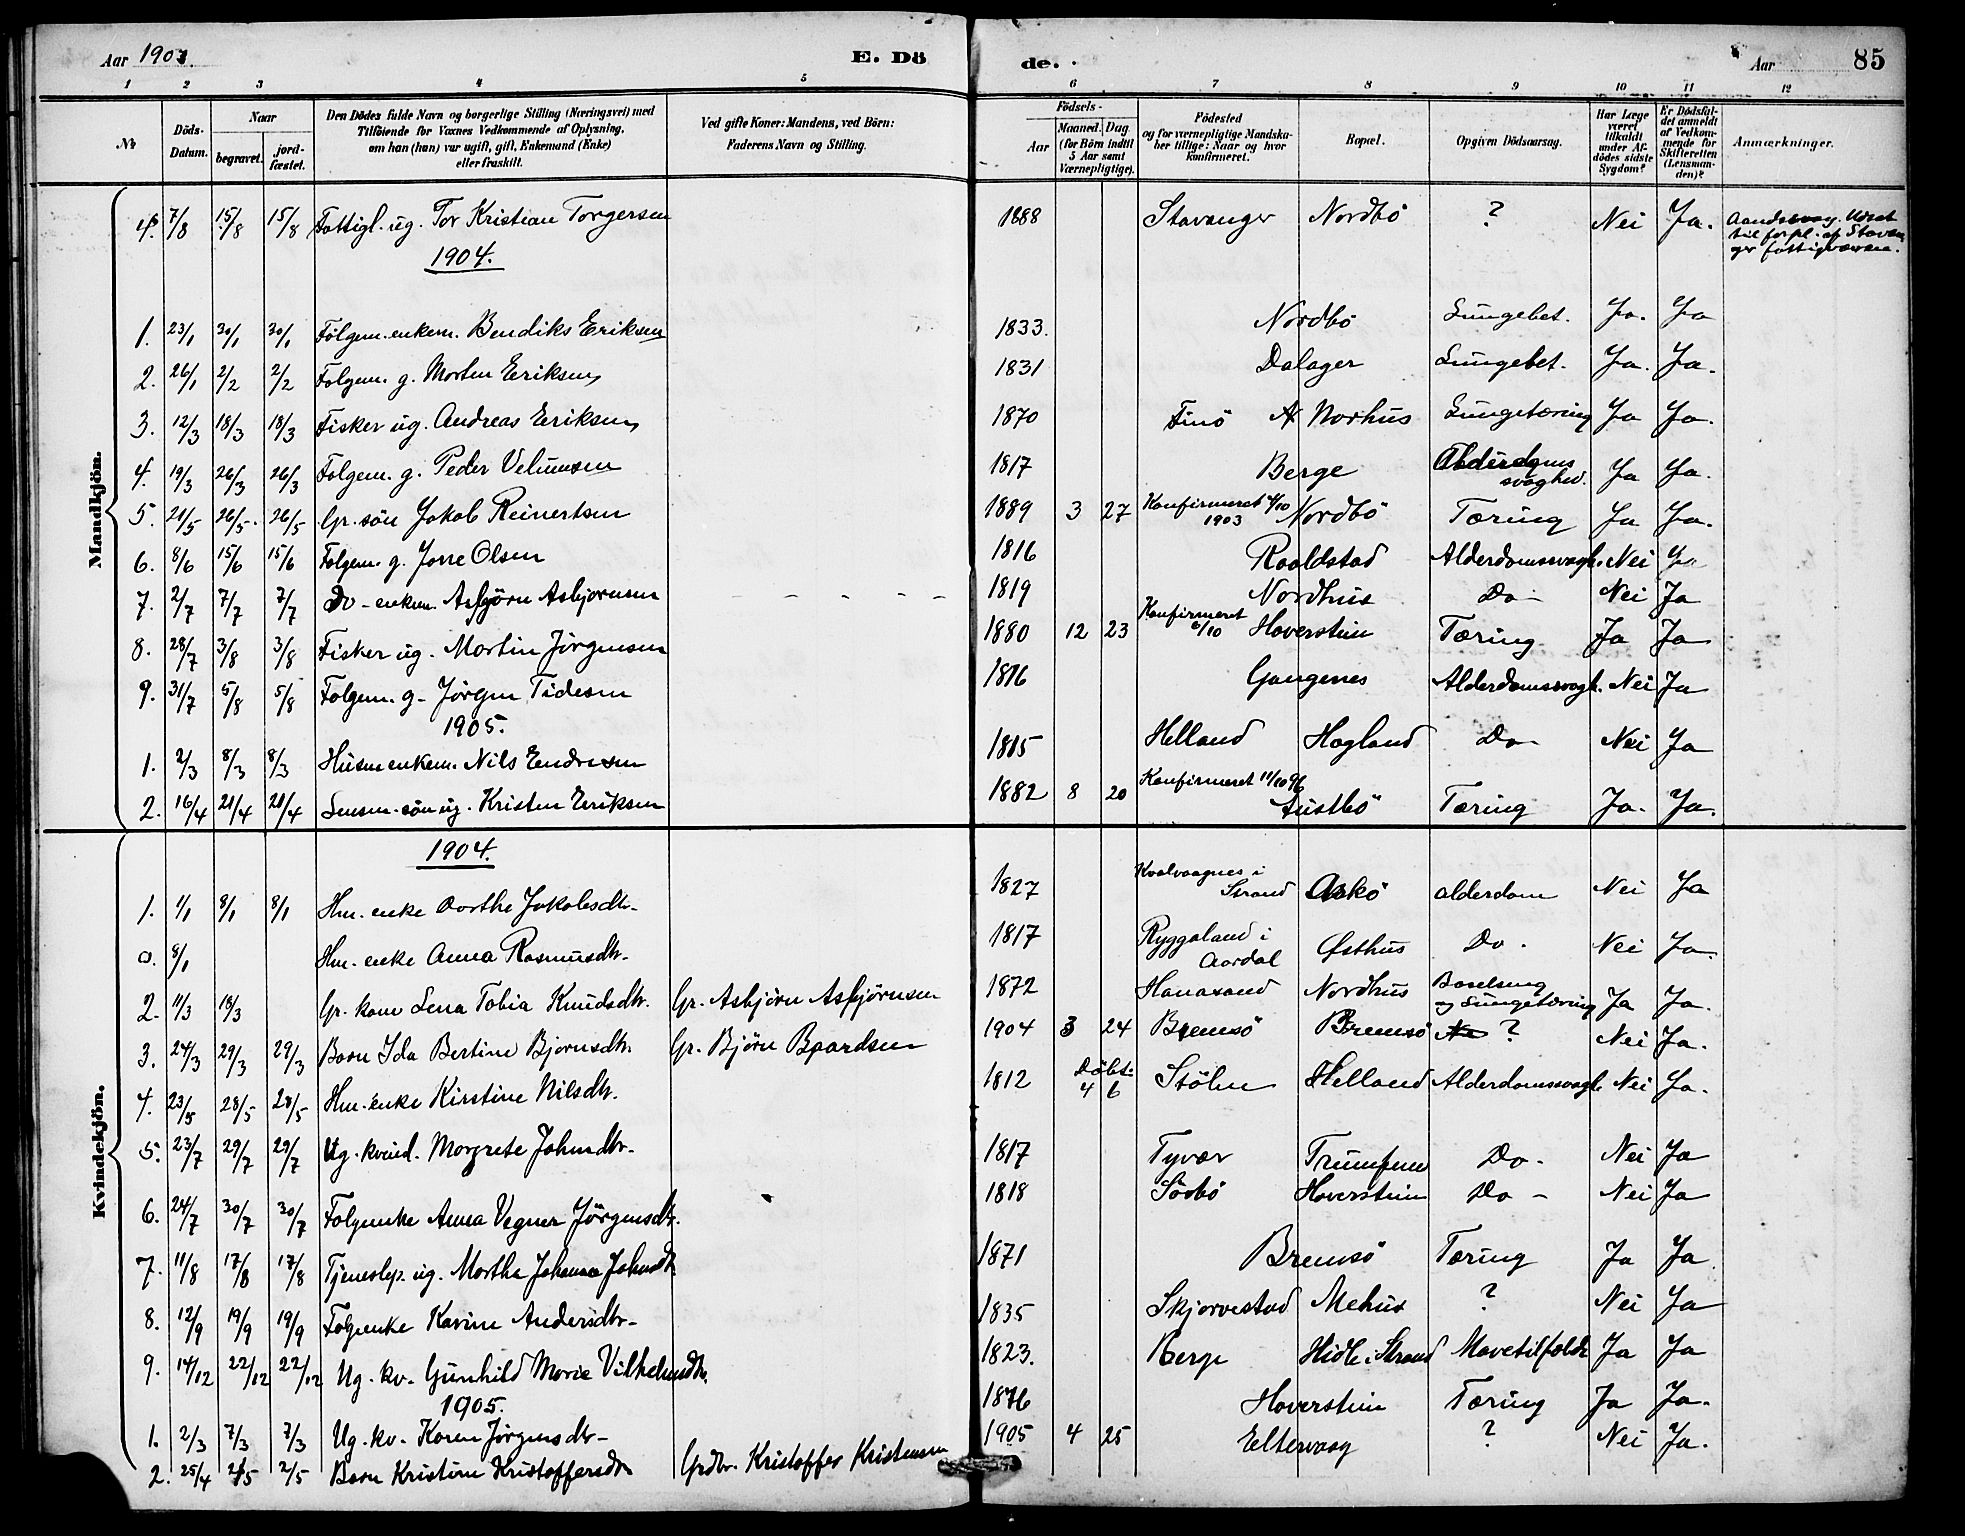 Aar 1903. E. Dö de. Aar 85
1 2 3 4 5 6 7 8 9 10 11 12
No Döds-Datum. Naar begravet. jordfæstet. Den Dödes fulde Navn og borgerlige Stilling (Næringsvei) med Tilföiende for Voxnes Vedkommende af Oplysning, om han (hun) var ugift, gift, Enkemand (Enke) eller fraskilt. Ved gifte Koner: Mandens, ved Börn: Faderens Navn og Stilling. Födsels- Aar Maaned. Dag (for Börn indtil 5 Aar samt Værnepligtige). Födested og for værnepligtige Mandskaber tillige: Naar og hvor konfirmeret. Bopæl. Opgiven Dödsaarsag. Har Læge været tilkaldt under Afdödes sidste Sygdom? Er Dödsfaldet anmeldt af Vedkommende for Skifteretten (Lensmanden)? Anmærkninger.
Mandkjön.
4. 7/8 15/8 15/8 Fattigl. ug. Tor Kristian Torgersen 1888 Stavanger Nordbö ? Nei Ja. Aandssvag. Udsat til forpl. af Stavanger fattigvæsen.
1904.
1. 23/1 30/1 30/1 Folgem. enkem. Bendiks Eriksen 1833. Nordbö Lungebet. Ja. Ja
2. 26/1 2/2 2/2 Folgem. g. Morten Eriksen 1831 Dalager Lungebet. Ja. Ja.
3. 12/3 18/3 18/3 Fisker ug. Andreas Eriksen 1870 Finö Norhus Lungetæring Ja Ja.
4. 19/3 26/3 26/3 Folgem. g. Peder Velumsen 1817 Berge Alderdoms svaghed. Ja Ja.
5. 21/5 26/5. 26/5 Gr. sön Jakob Reinertsen 1889 3 27 Konfirmeret 4/10 1903 Nordbö Tæring Ja Ja.
6. 8/6 15/6 15/6 Folgem. g. Jorre Olsen 1816 Raaldstad Alderdomssvagh. Nei Ja
7. 2/7 7/7 7/7 Do - enkem. Asbjörn Asbjornsen 1819 Nordhus Do - Nei Ja
8. 28/7 3/8 3/8 Fisker ug. Martin Jörgensen 1880 12 23 Konfirmeret /10 Haverstein Tæring Ja Ja
9. 31/7 5/8 5/8 Folgem. g. Jörgen Tidesen 1816 Gangenes Alderdomssvagh. Nei Ja
1905.
1. 2/3 8/3 8/3 Husm enkem. Nils Endresen 1815 Helland Hagland Do - Nei Ja
2. 16/4 21/4 21/4 Lensm. sön ug. Kristen Eriksen 1882 8 20 Konfirmeret 11/10 96 Austbö Tæring Ja. Ja.
Kvindekjön.
1904.
1. 1/1 8/1 8/1 Hm. enke Dorthe Jakobsdtr. 1827 Kvalvaagnes i Strand Askö alderdom Nei Ja
0. 8/1 Hm. enke Anna Rasmusdtr. 1817 Ryggaland i Aardal Østhus Do. Nei Ja.
2. 11/3 18/3 Gr. kone Lena Tobia Knudsdtr. Gr. Asbjörn Asbjörnsen 1872 Hanasand Nordhus Barselseng og Lungetæring Ja Ja.
3. 24/3 29/3 29/3 Barn Ida Bertine Bjornsdtr. Gr. Björn Baardsen 1904 3 24 Bremsö Bremsö ? Nei Ja.
4. 23/5 28/5 28/5 Hm. enke Kirstine Nilsdtr. 1812 Döbt: 4 6 Stölen Helland Alderdomssvagh. Nei Ja.
5. 23/7 29/7 29/7 Ug. kvind. Margrete Johnsdtr. 1817 Tyvær Trumpene Do - Nei Ja
6. 24/7 30/7 30/7 Folgenke Anna Vegner Jörgensdtr. 1818 Sörbö Haverstein Do - Nei Ja
7. 11/8 17/8 17/8 Tjenestep. ug. Martha Johanna Johnsdtr. 1871 Bremsö Tæring Ja Ja
8. 12/9 19/9 19/9 Folgenke Karine Andersdtr. 1835 Skjorvestad Mehus ? Nei Ja
9. 14/12 22/12 22/12 Ug. kv. Gunhild Marie Vilhelmsdtr. 1823. Berge Hidle i Strand Mavetilfælde Ja Ja
1905.
1. 2/3 7/3 7/3 Ug. kv. Karen Jörgensdtr. 1876 Haverstein Tæring Ja Ja.
2. 25/4 2/5 2/5 Barn Kristine Kristoffersdtr. Grdbr. Kristoffer Kristensen 1905 4 25 Eltervaag ? Nei Ja.